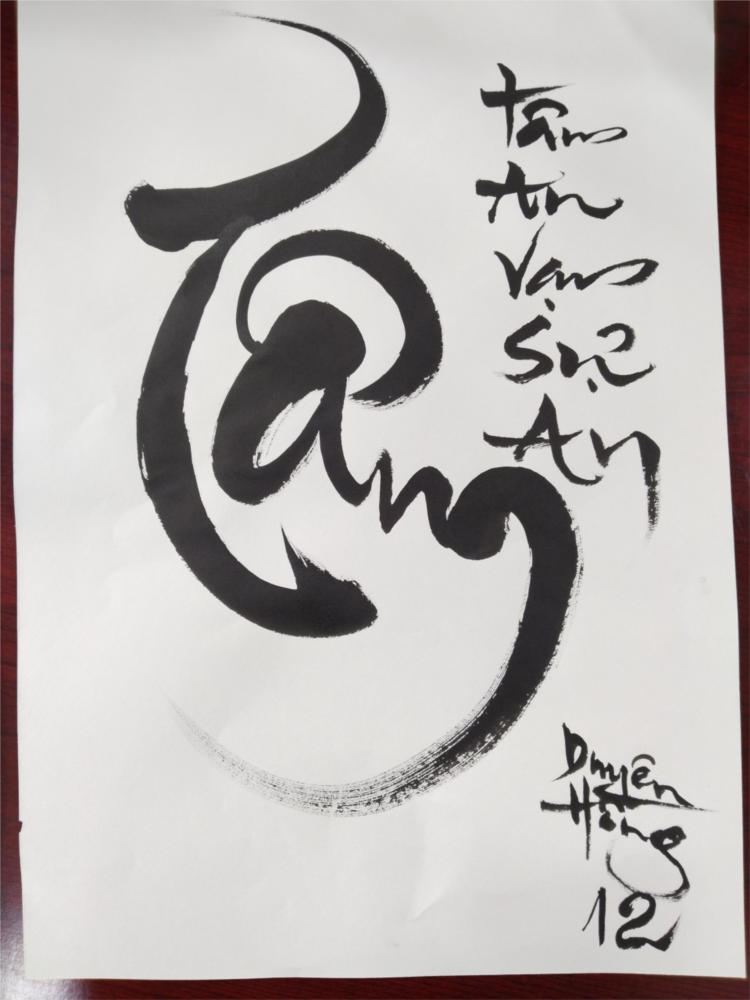 Tâm
Tâm
An
Vạn
Sự
An
Duyên
Hồng
12